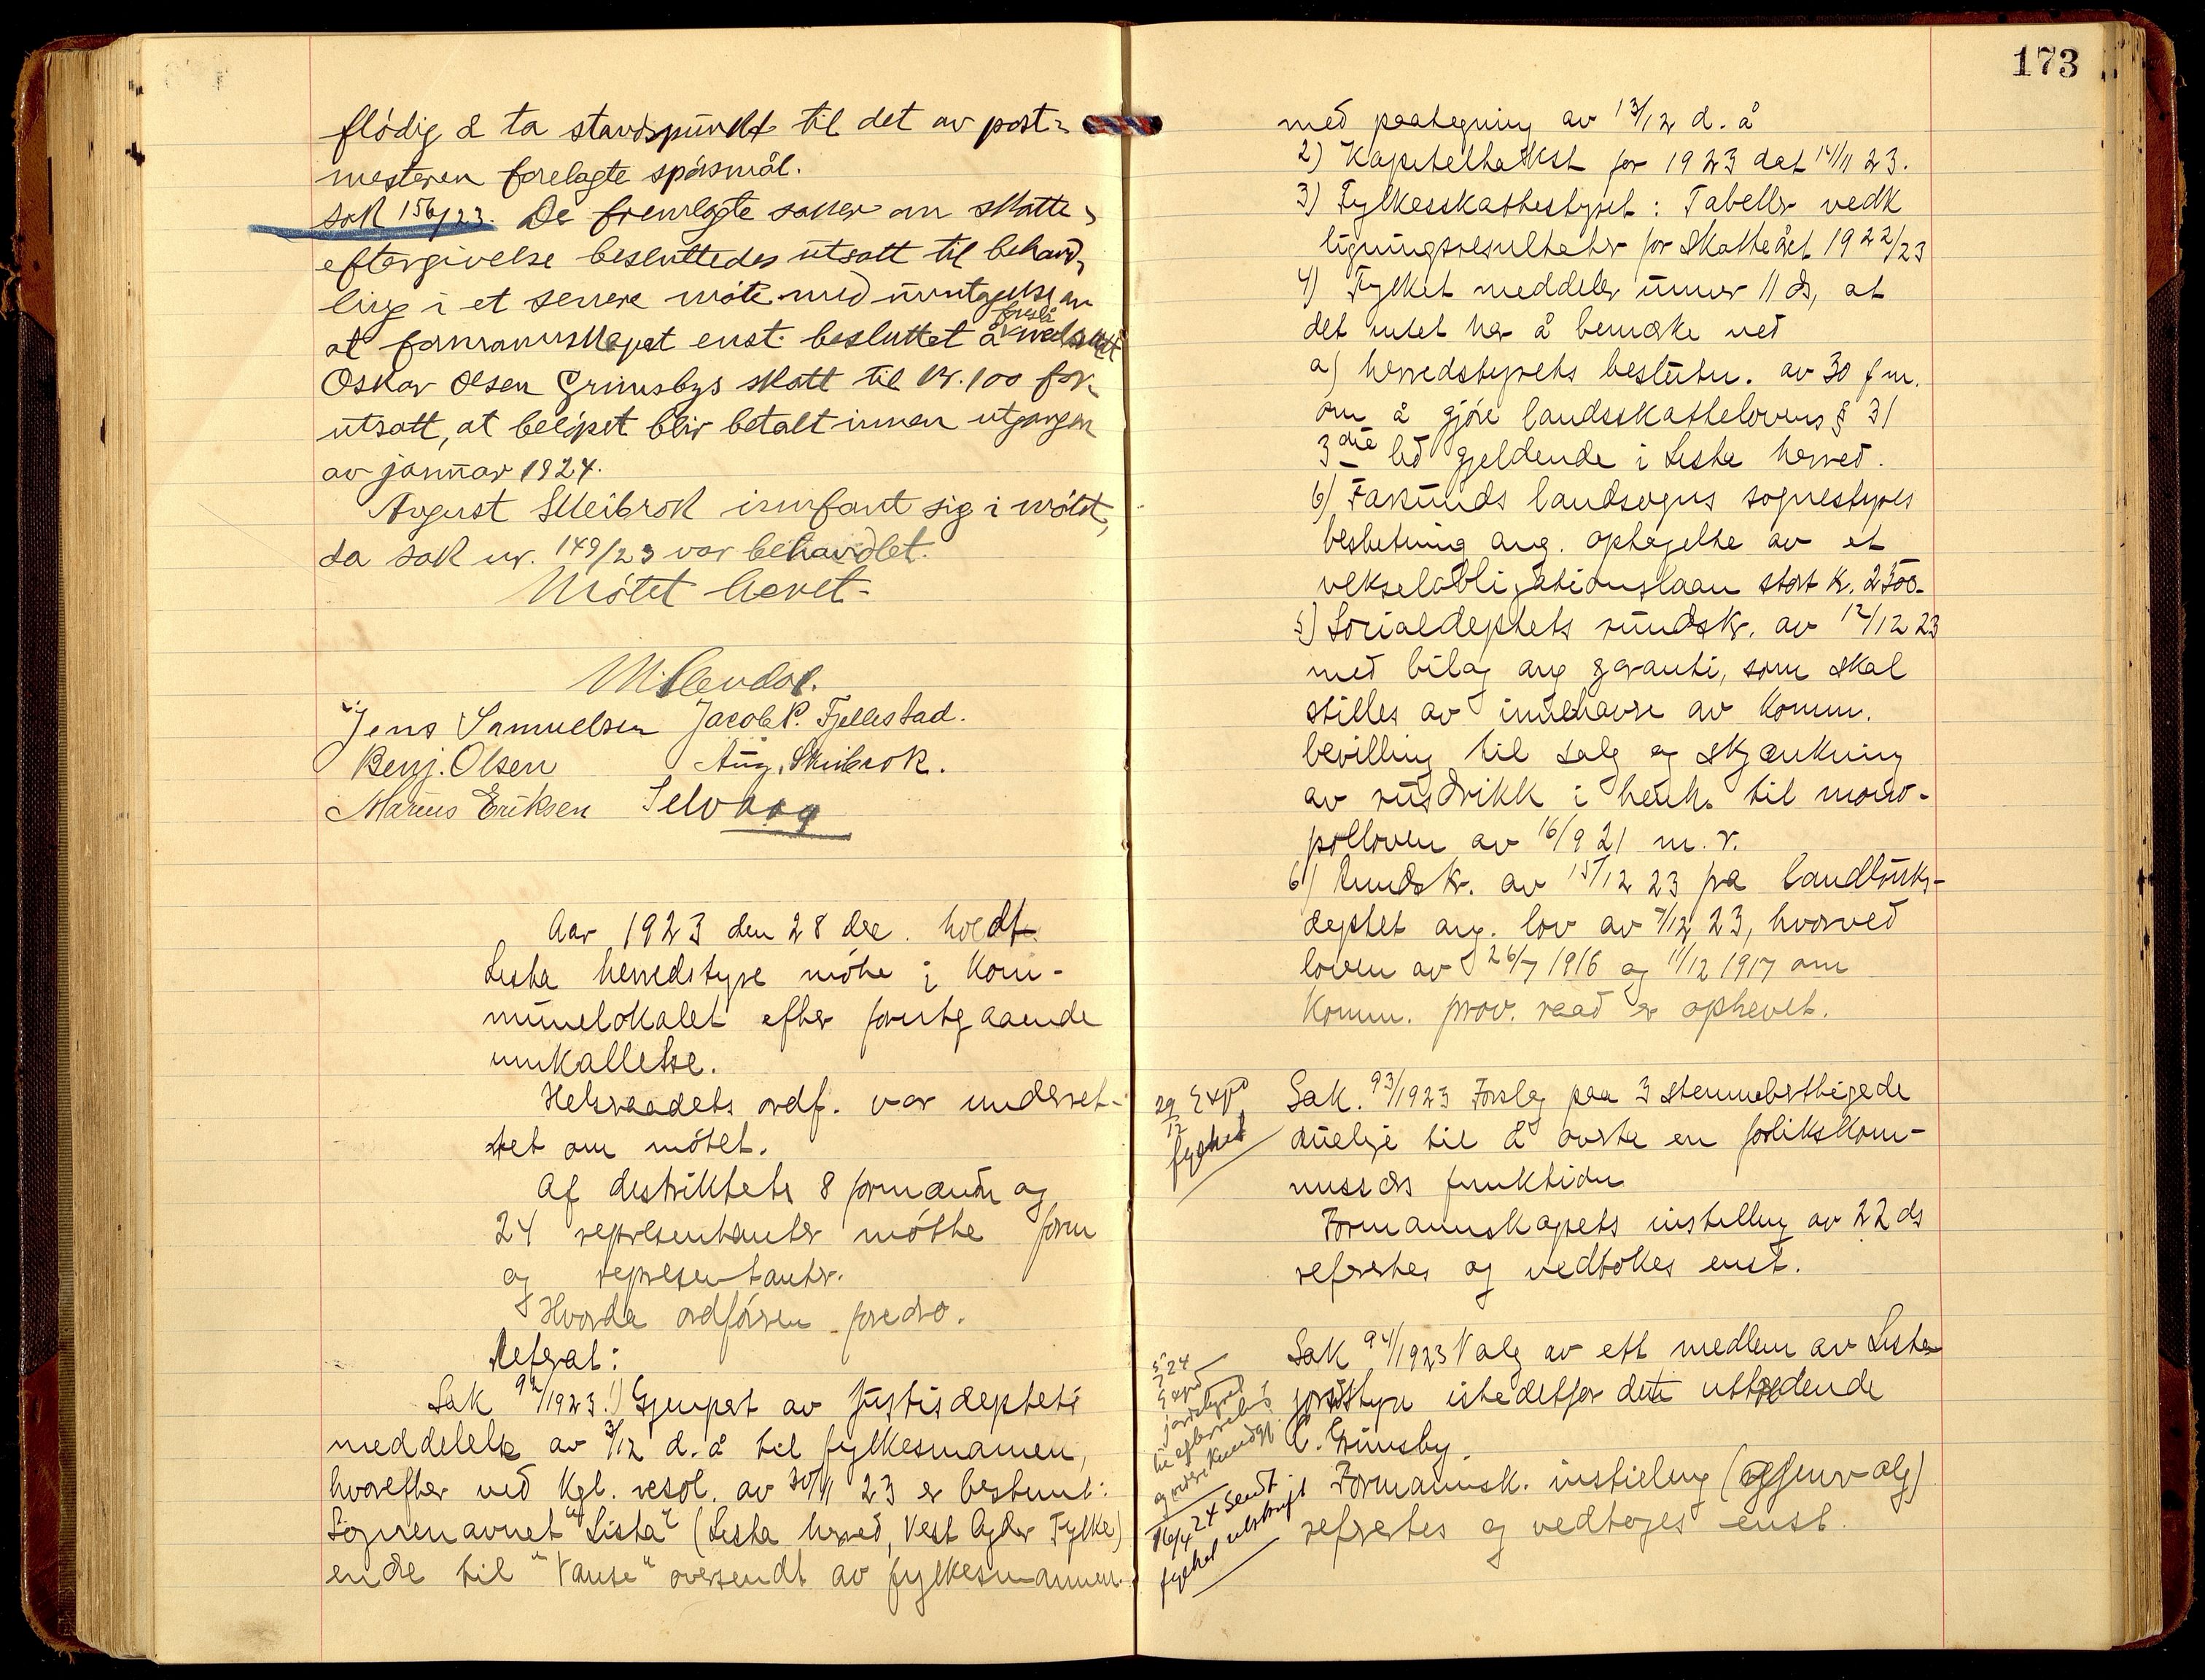 flödig å ta standspunkt til det av post-
mesteren forelagte spörsmål.
sak 156/23. De fremlagte saker om skatte-
eftergivelse besluttedes utsatt til behand-
ling i et senere möte med undtagelse av
foreslå
at formannskapet enst. besluttet å nedsatt
Oskar Olsen Grimsbys skatt til kr. 100 for-
utsatt, at belöpet blir betalt innen utgangen
av januar 1924.
August Skeibrok innfant sig i mötet,
da sak nr. 149/23 var behandlet.
Mötet hevet.
Jens Samuelsen Jacob P. Fjellestad.
Benj. Olsen Aug. Skeibrok.
Marius Eriksen Selvaag
Aar 1923 den 28 des. holdt
Lista herredstyre möte i kom-
munelokalet efter forutgaaende
innkallelse.
Helseraadets ordf. var underret-
tet om mötet.
Af distriktets 8 formænn og
24 representanter mötte form
og representanter.
Hvorda ordföreren foredro.
Referat:
Sak 92/1923. 1) Gjenpart av Justisdeptets
meddelelse av 3/12 d. å til fylkesmannen,
hvorefter ved Kgl. resol. av 30/11 23 er bestemt:
Sognenavnet "Lista" (Lista herred, Vest Agder Fylke)
endr til "Vanse" oversendt av fylkesmannen
173
med paategning av 13/12 d. å
2) Kapiteltakst for 1923 dat 14/11 23.
3) Fylkesskattestyret: Tabeller vedk
ligningsresultater for Skatteåret 1922/23
4) Fylket meddeler under 11 ds, at
det intet har å bemerke ved
a) herredstyrets beslutn. av 30 f m.
om å gjöre landsskattelovens § 31
3die led gjeldende i Lista herred.
b) Farsunds landsogns sognestyres
beslutning ang. optagelse av et
vekselobligationslaan stort kr. 2500.-
5) Socialdeptets rundskr. av 12/12 23
med bilag ang garanti, som skal
stilles av innehavere av komm.
bevilling til salg og skjenkning
av rusdrikk i henh. til mono-
polloven av 16/9 21 m. v.
6) Rundskr. av 15/12 23 fra landbruks-
deptet ang. lov av 7/12 23, hvorved
loven av 26/7 1916 og 11/12 1917 om
komm. prov. raad er ophevet.
29/12 Exp.
fylket
Sak. 93/1923 Forslag paa 3 stemmeberettigede
duelige til å overta en forlikskom-
missærs funktion
Formannskapets instilling av 22 ds
refertes og vedtokes enst.
24
Exped
jordstyret
Sak 94/1923 Valg av ett medlem av Lista
jordstyre istedetfor dets uttredende
O. Grimsby.
16/4 24 sendt
fylket utskrift
Formannsk. instilling (gjenvalg)
refertes og vedtoges enst.